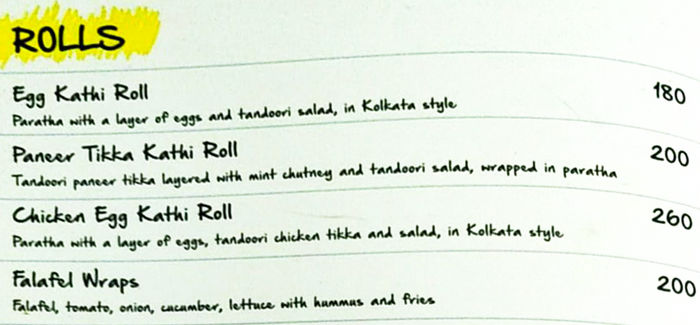 ROLLS
Egg Kathi Roll 180
Paratha with a layer of eggs and tandoori salad, in Kolkata style
Paneer Tikka Kathi Roll 200
Tandoori paneer tikka layered with mint chutney and tandoori salad, wrapped in paratha
Chicken Egg Kathi Roll 260
Paratha with a layer of eggs, tandoori chicken tikka and salad, in Kolkata style
Falafel Wraps 200
Falafel, tomato, onion, cucumber, lettuce with hummus and fries